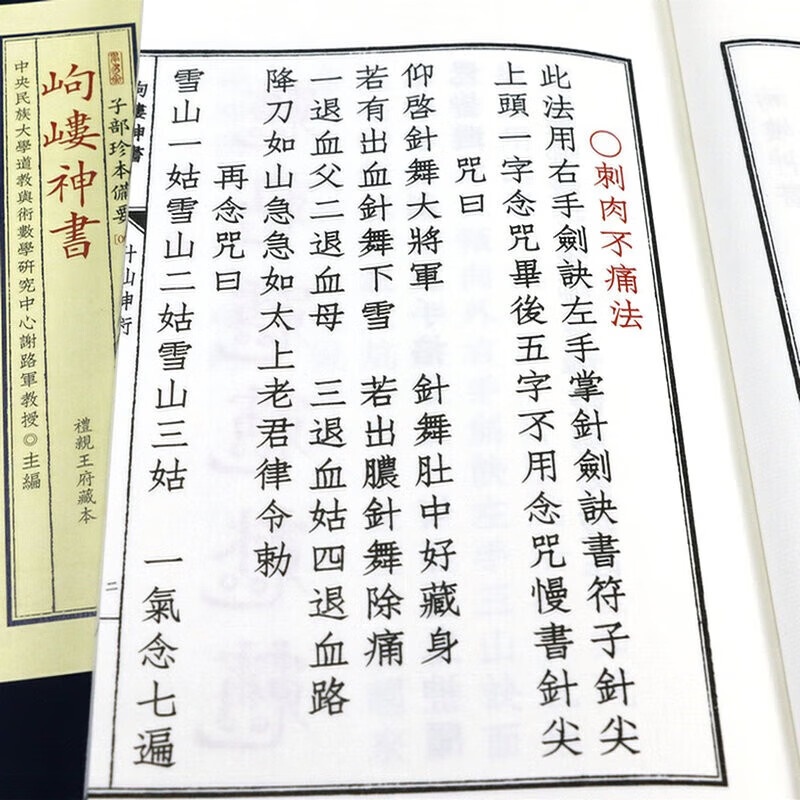 ○刺肉不痛法
此法用右手劍訣左手掌針劍訣書符子針尖
上頭一字念咒畢後五字不用念咒慢書針尖
咒曰
仰啓針舞大將軍 針舞肚中好藏身
若有出血針舞下雪 若出膿針舞除痛
一退血父二退血母 三退血姑四退血路
降刀如山急急如太上老君律令勅
再念咒曰
雪山一姑雪山二姑雪山三姑 一氣念七遍
岣嶁神書
二
子部珍本備要
岣嶁神書
中央民族大學道教與術數學研究中心謝路軍教授◎主編
禮親王府藏本